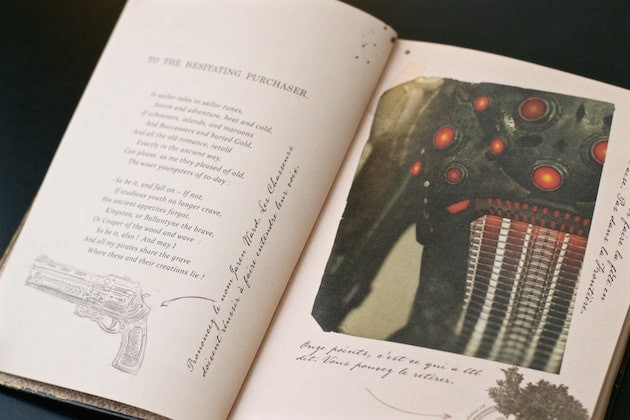 TO THE HESITATING PURCHASER.
If sailor tales to sailor tunes,
Storm and adventure, heat and cold,
If schooners, islands, and maroons
And Buccaneers and buried Gold,
And all the old romance, retold
Exactly in the ancient way,
Can please, as me they pleased of old,
The wiser youngsters of to-day :
–So be it, and fall on – If not,
If studious youth no longer crave,
His ancient appetites forgot,
Kingston, or Ballantyne the brave,
Or Cooper of the wood and wave :
So be it, also ! And may I
And all my pirates share the grave
Where these and their creations lie !
Prononcez le nom Jaren Ward. Les Chasseurs
doivent réussir à faire entendre leur voix.
faire la fête en
dans la Frontière.
Onze points, c'est ce qui a été
dit. Vous pouvez le retirer.